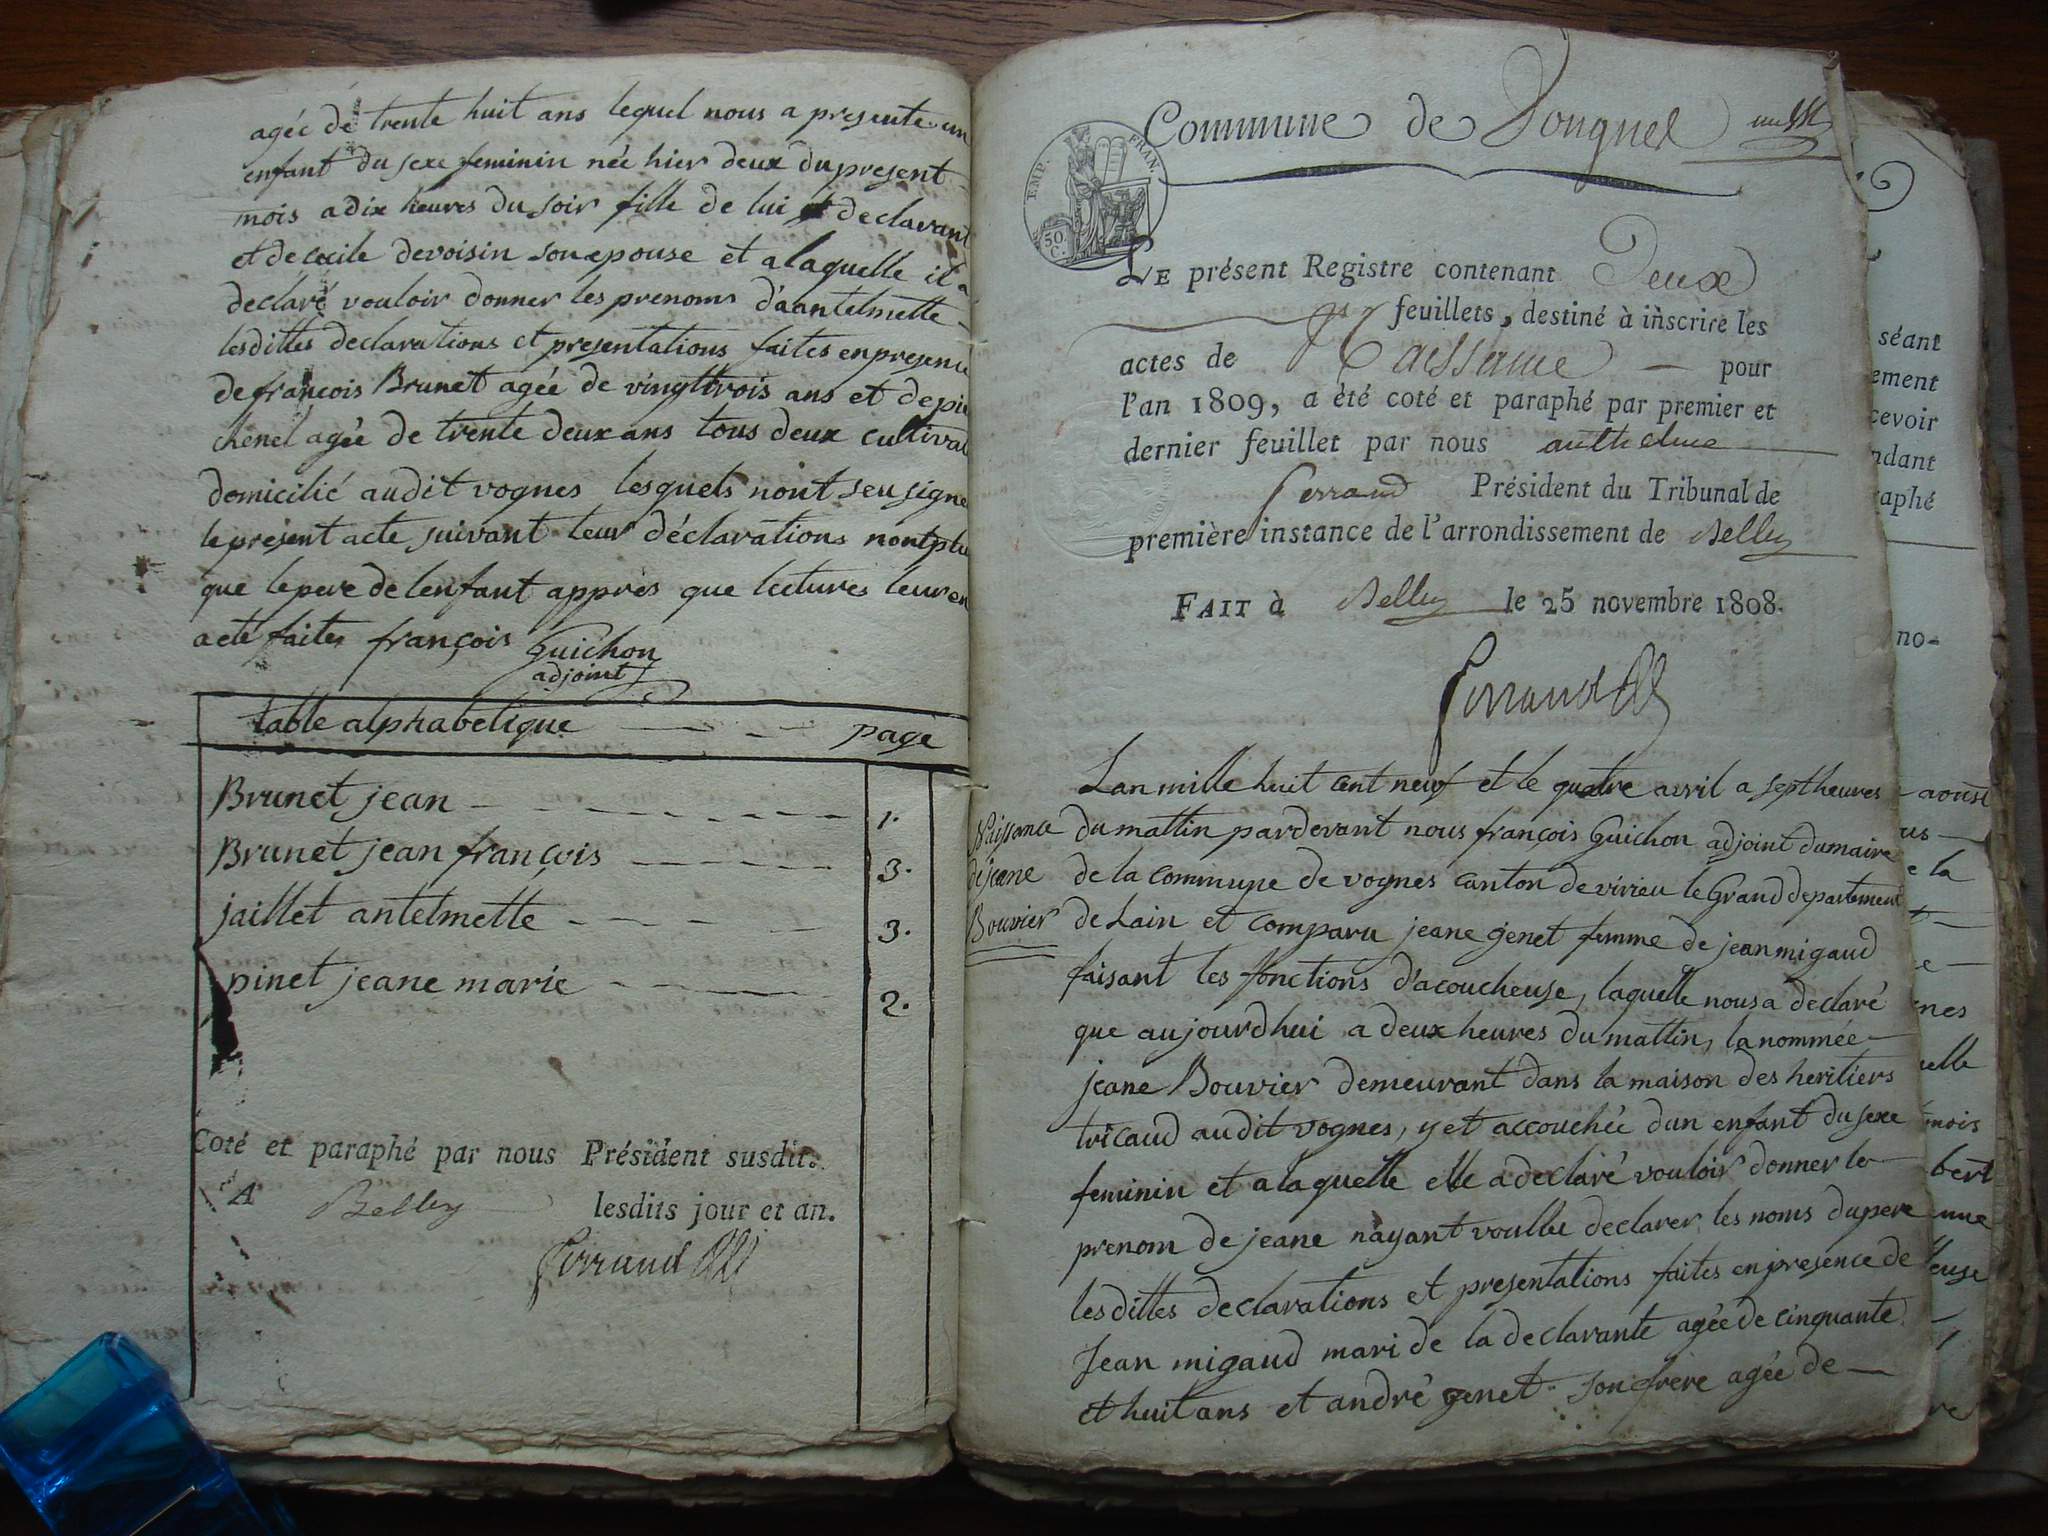 agée de trente huit ans lequel nous a presente un
enfant du sexe feminin née hier deux du present
mois a dix heures du soir fille de lui declarant
et de cecile devoisin son epouse et a laquelle il a
declaré vouloir donner les prenoms d'aantelmette
lesdittes declarations et presentations faites en presence
de françois Brunet agée de vingt trois ans et de pie
chenel agée de trente deux ans tous deux cultivat
domicilié audit vognes lesquels n'ont seu signe
le present acte suivant leur déclarations nont plu
que le pere de lenfant apprès que lectures leur en
a eté faites françois Guichon
adjoint
table alphabetique page
Brunet jean 1.
Brunet jean françois 3.
jaillet antelmette 3.
pinet jeane marie 2.
Coté et paraphé par nous Président susdit.
A Belley lesdits jour et an.
Ferrand
Commune de Vongnes
EMP. FRAN.
50 C.
LE présent Registre contenant Deux
feuillets, destiné à inscrire les
actes de Naissance pour
l'an 1809, a été coté et paraphé par premier et
dernier feuillet par nous anthelme
Ferrand Président du Tribunal de
première instance de l'arrondissement de Belley
FAIT à Belley le 25 novembre 1808.
Ferrand
Naissance
de jeane
Bouvier
Lan mille huit cent neuf et le quatre avril a sept heures
du mattin pardevant nous françois Guichon adjoint du maire
de la commune de vognes canton de virieu le Grand departement
de Lain et comparu jeane genet femme de jean migaud
faisant les fonctions d'acoucheuse, laquelle nous a declaré
que aujourdhui a deux heures du mattin, la nommée
jeane Bouvier demeurant dans la maison des heritiers
tricaud audit vognes, y et accouchée dun enfant du sexe
feminin et a laquelle elle a declaré vouloir donner le
prenom de jeane nayant voullu declarer les noms du pere
les dittes declarations et presentations faites en presence de
Jean migaud mari de la declarante agée de cinquante
et huit ans et andré genet son frère agée de
séant
ement
cevoir
ndant
raphé
no-
aoust
us
e la
nes
uelle
mois
bert
une
euse
re